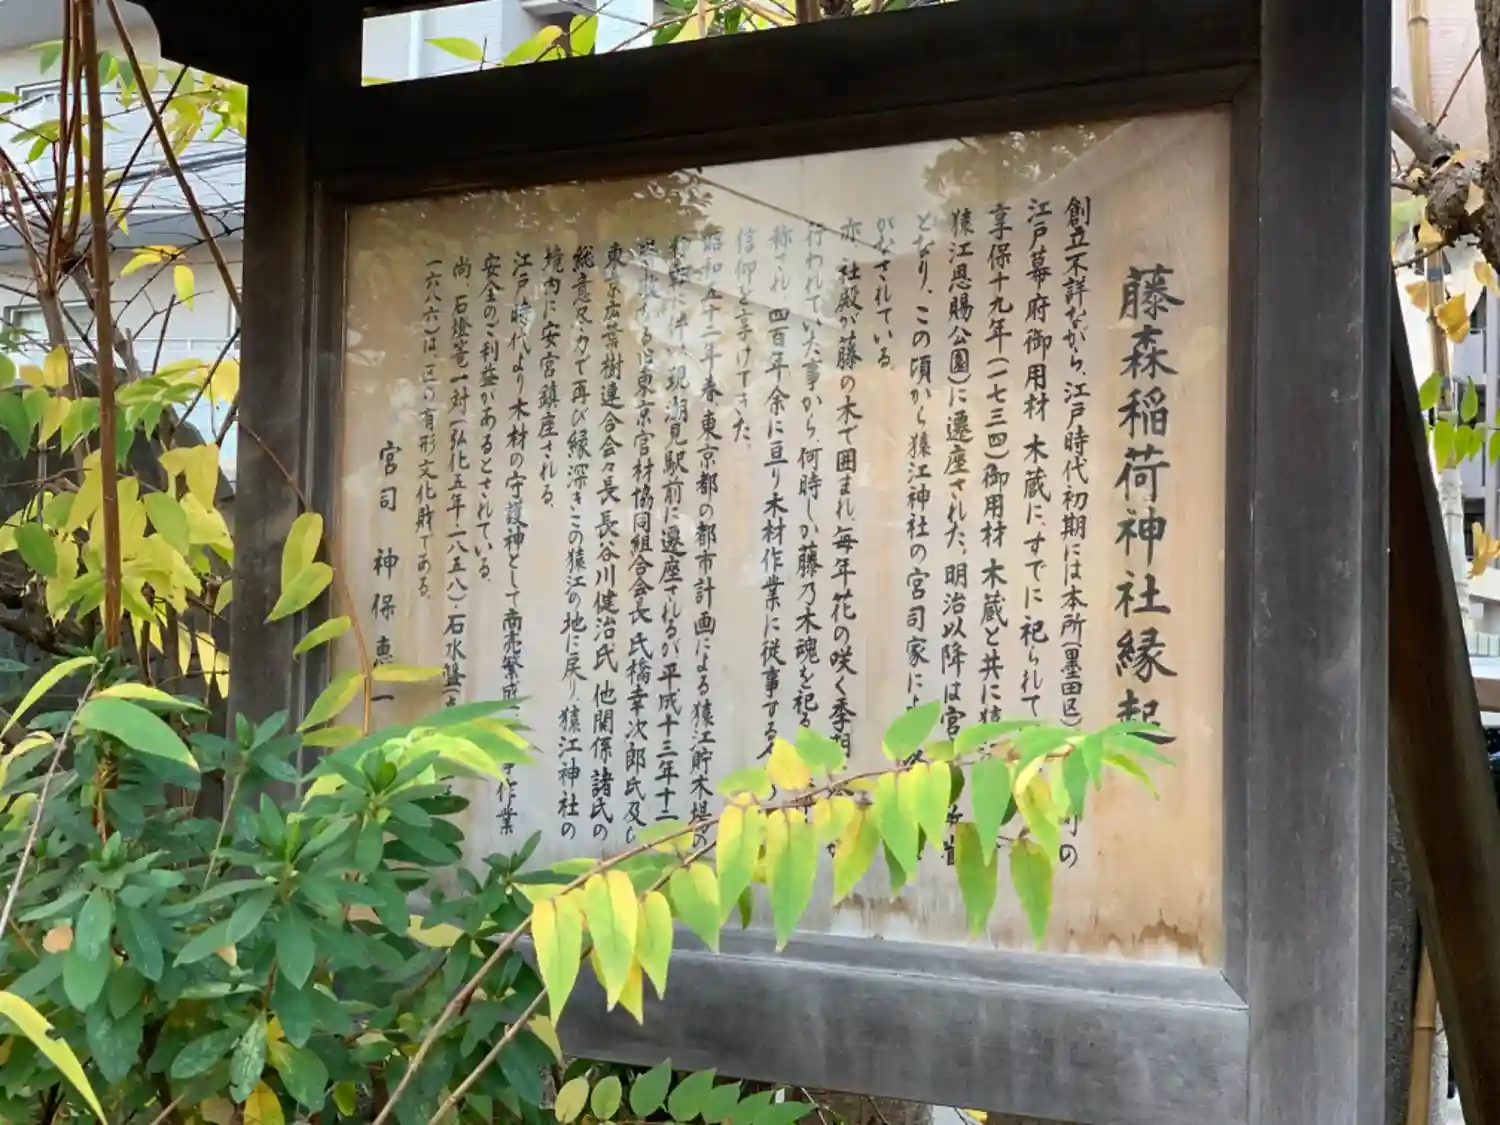 藤森稲荷神社縁起
創立不詳ながら、江戸時代初期には本所(墨田区)
江戸幕府御用材 木蔵に、すでに祀られて
享保十九年(一七三四)御用材 木蔵と共に猿
猿江恩賜公園)に遷座された。明治以降は宮
となり、この頃から猿江神社の宮司家によ
がなされている。
亦、社殿が藤の木で囲まれ、毎年花の咲く季
行われていた事から、何時しか藤乃木魂を祀る
称され、四百年余に亘り木材作業に従事する
信仰を享けてきた。
昭和五十二年春東京都の都市計画による猿江貯木場の
に伴い現潮見駅前に遷座されるが平成十三年十二
る旧東京官材協同組合会長氏橋幸次郎氏及び
東京広葉樹連合会々長長谷川健治氏 他関係諸氏の
総意尽力で再び縁深きこの猿江の地に戻り、猿江神社の
境内に安宮鎮座される。
江戸時代より木材の守護神として商売繁成 作業
安全のご利益があるとされている。
尚、石燈篭一対(弘化五年一八五八)・石水盤
一六八六)は、区の有形文化財である。
宮司 神保恵一